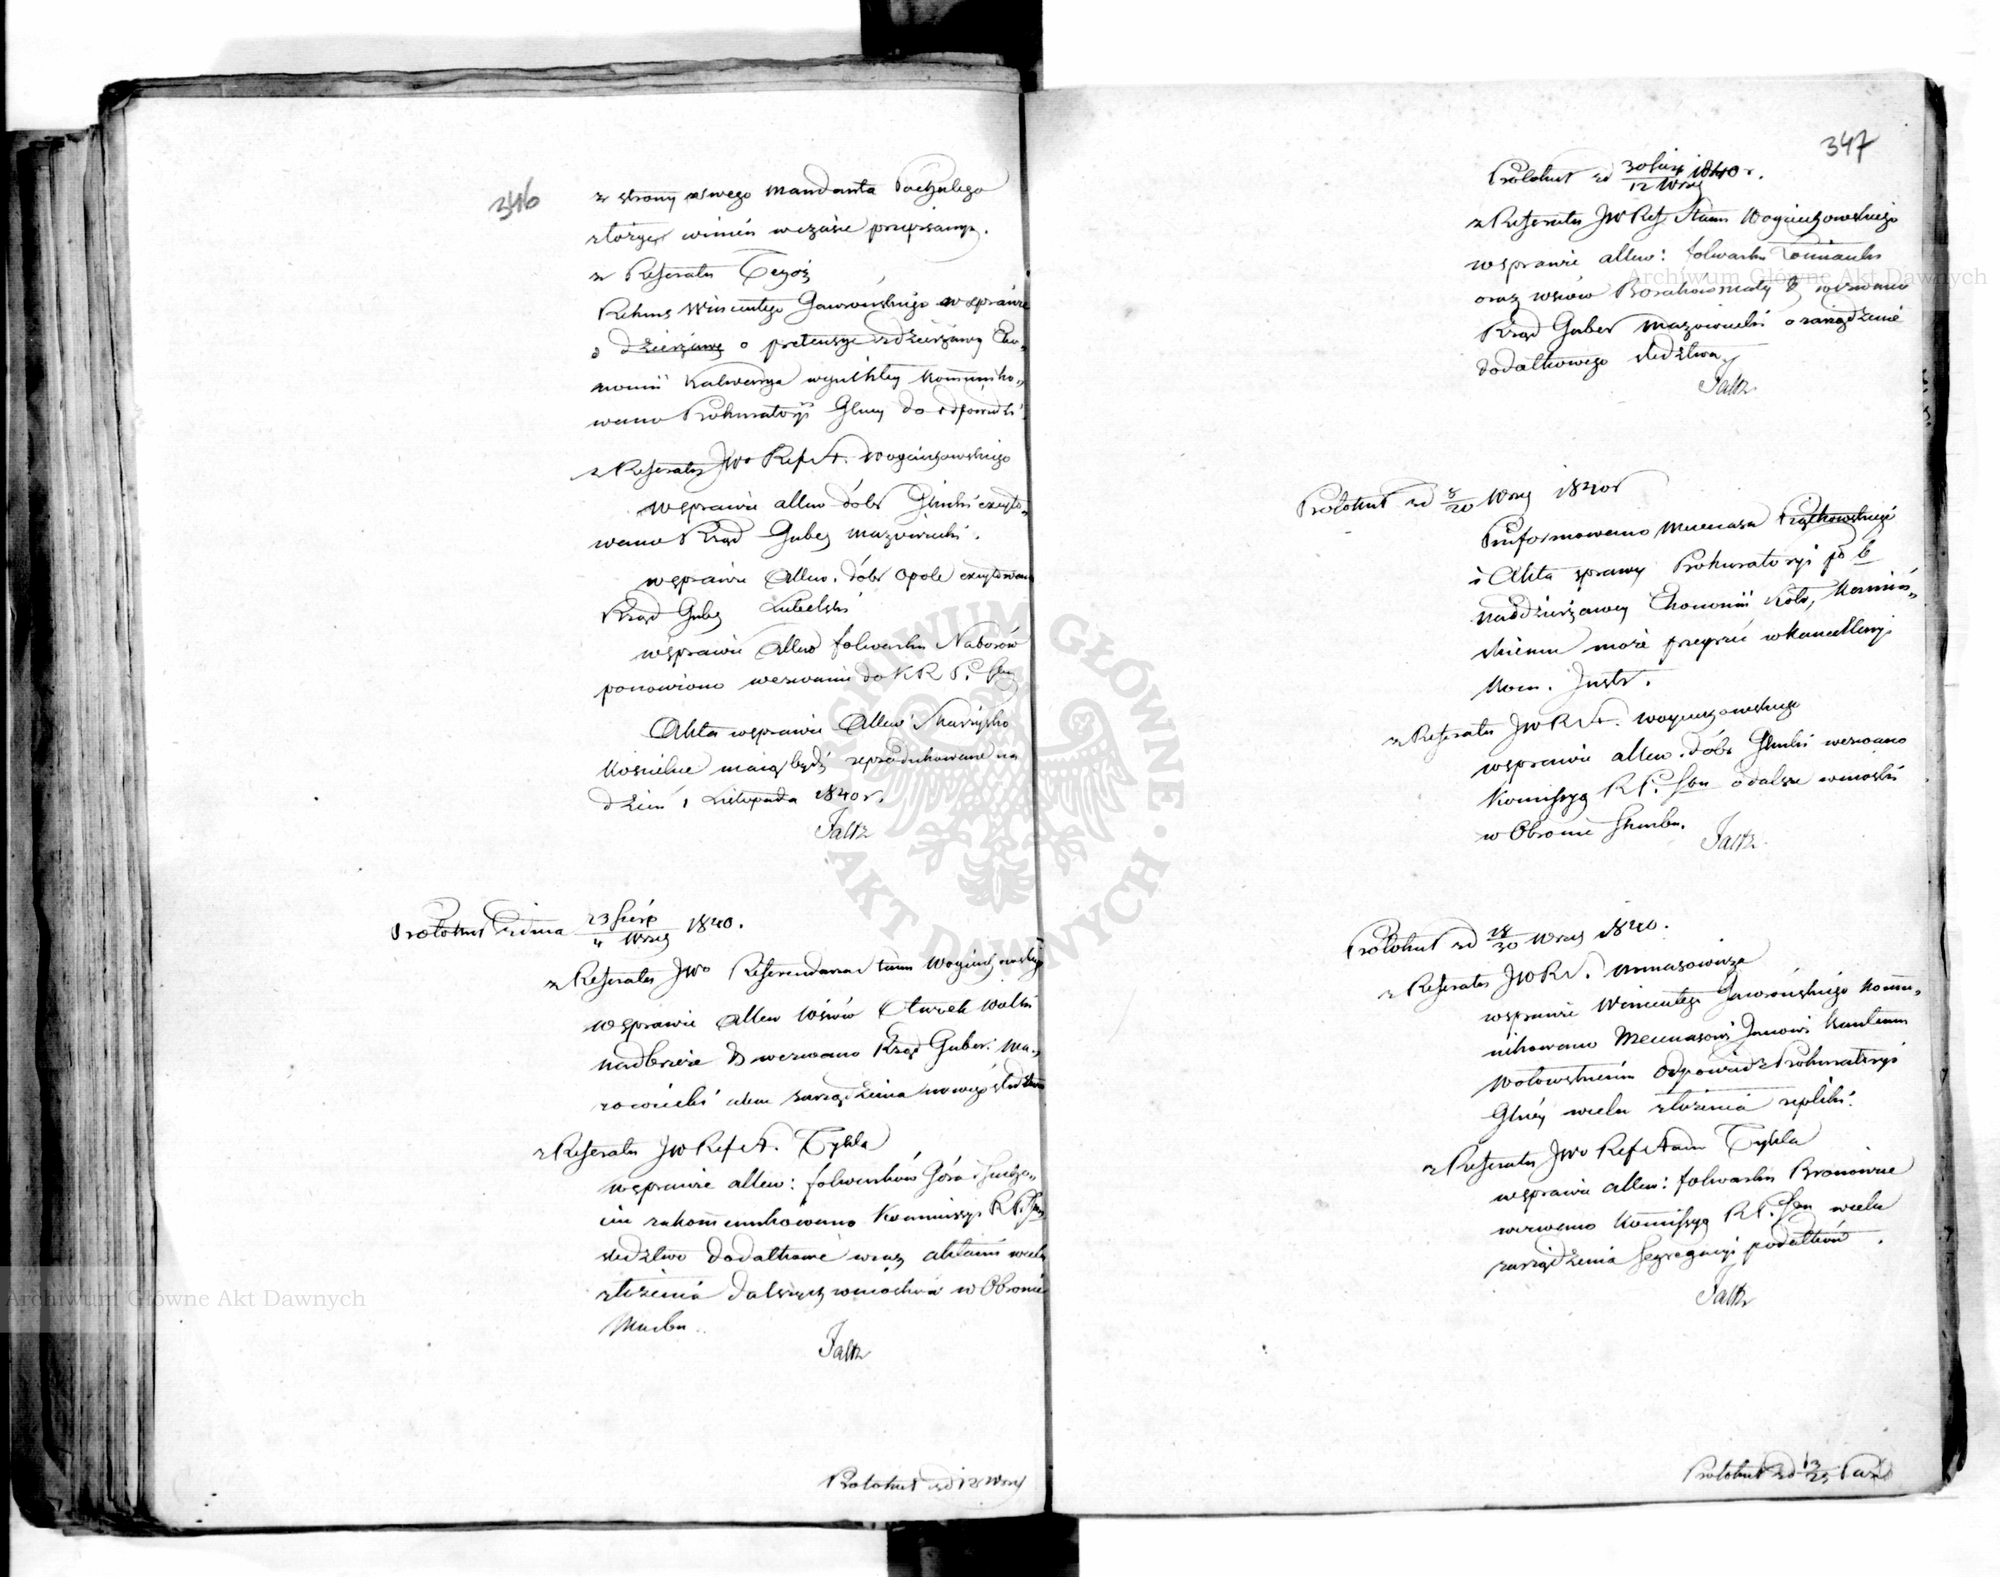 346
z strony swego Mandanta
złożyć winien w czasie przepisanym.
z Referatu Tegoż
Rekurs Wincentego Jaworskiego w sprawie
o dzierżawę o pretensye z dzierżawy Eko„
nomii Kalwarya wynikłey kommuniko„
wano Prokuratoryi Głney do odpowiedzi
z Referatu JWo Ref St. Woyciechowskiego
w sprawie allew dóbr excyto„
wano Rząd Guber Mazowiecki.
w sprawie allew. dóbr Opole excytowano
Rząd Gube Lubelski
w sprawie allew folwarku Naborów
ponowiono wezwanie do K R P. Sku
Akta w sprawie allew Skarzysko
Kościelne mają bydź reprodukowane na
dzień 1 Listopada 1840 r.
Faltz
Protokuł z dnia 23 Sierp / 4 Wrześ 1840.
z Referatu JWo Referendarza Stanu Woyciechowskiego
w sprawie allew wsiów Wólki
nadbrzeże wezwano Rząd Guber. Ma„
zowiecki celem zarządzenia nowego śledztwa
z Referatu JW Ref St. Tykla
w sprawie allew: folwarków Góra
zakommunikowano Kommissyi R P. Sku
śledztwo dodatkowe wraz aktami celem
złożenia dalszych wniosków w Obronie
Skarbu.
Faltz
Protokuł zd 12 Wrześ
347
Protokuł zd 30 Sierp / 12 Wrześ 1840 r.
z Referatu JW Ref Stanu Woyciechowskiego
w sprawie allew: folwarku Łomianki
oraz wsiów wezwano
Rząd Guber Mazowiecki o zarządzenie
dodatkowego śledztwa
Faltz
Protokuł zd 8/20 Wrześ 1840 r
Poinformowano Mecenasa
iż Akta sprawy Prokuratoryi po b
naddzierżawcy Ekonomii Koło, Kamiń„
skiemu może przeyrzeć w Kancellaryi
Kom. Instr.
z Referatu JW R St. Woyciechowskiego
w sprawie allew. dóbr wezwano
Kommissyą R P. Sku o dalsze wnioski
w Obronie Skarbu.
Faltz
Protokuł zd 18/30 Wrześ 1840.
z Referatu JW R St.
w sprawie Wincentego Jaworskiego kommu„
nikowano Mecenasowi Janowi Kantemu
Wołowskiemu odpowiedź Prokuratoryi
Głney celem złożenia repliki.
z Referatu JWo Ref Stanu Tykla
w sprawie allew: folwarku Bronowice
wezwano Kommissyą R P. Sku celem
zarządzenia segregacyi podatków.
Faltz
Protokuł zd 13/25 Paźd